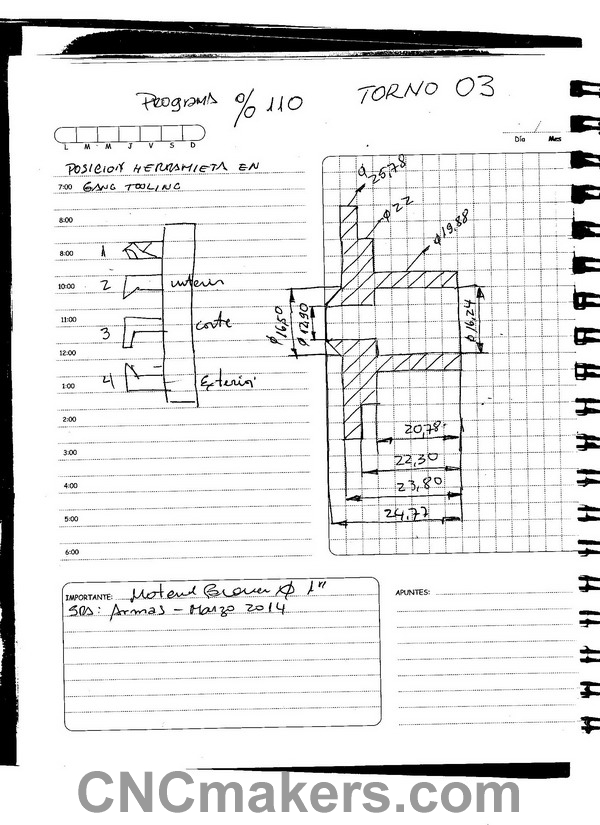 PROGRAMA % 110
TORNO 03
L M M J V S D
Día Mes
POSICION HERRAMIETA EN
7:00 GANG TOOLING
8:00
8:00
10:00
11:00
12:00
1:00
2:00
3:00
4:00
5:00
6:00
1
2 interior
3 corte
4 Exterior
25,78
φ22
φ19,88
φ16,50
φ12,90
φ16,24
20,78
22,30
23,80
24,77
IMPORTANTE: 1"
SRS: Armas - Marzo 2014
APUNTES:
CNCmakers.com